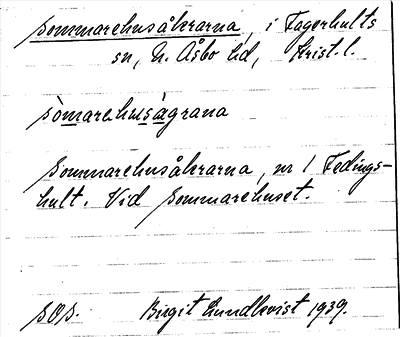 sommarehusåkrarna, i Fagerhults
sn, N. Åsbo hd, Krist. l.
sòmarehusàgrana
Sommarehusåkrarna, nr 1 Fedings-
hult. Vid Sommarehuset.
SOS. Birgit Lundkvist 1939.